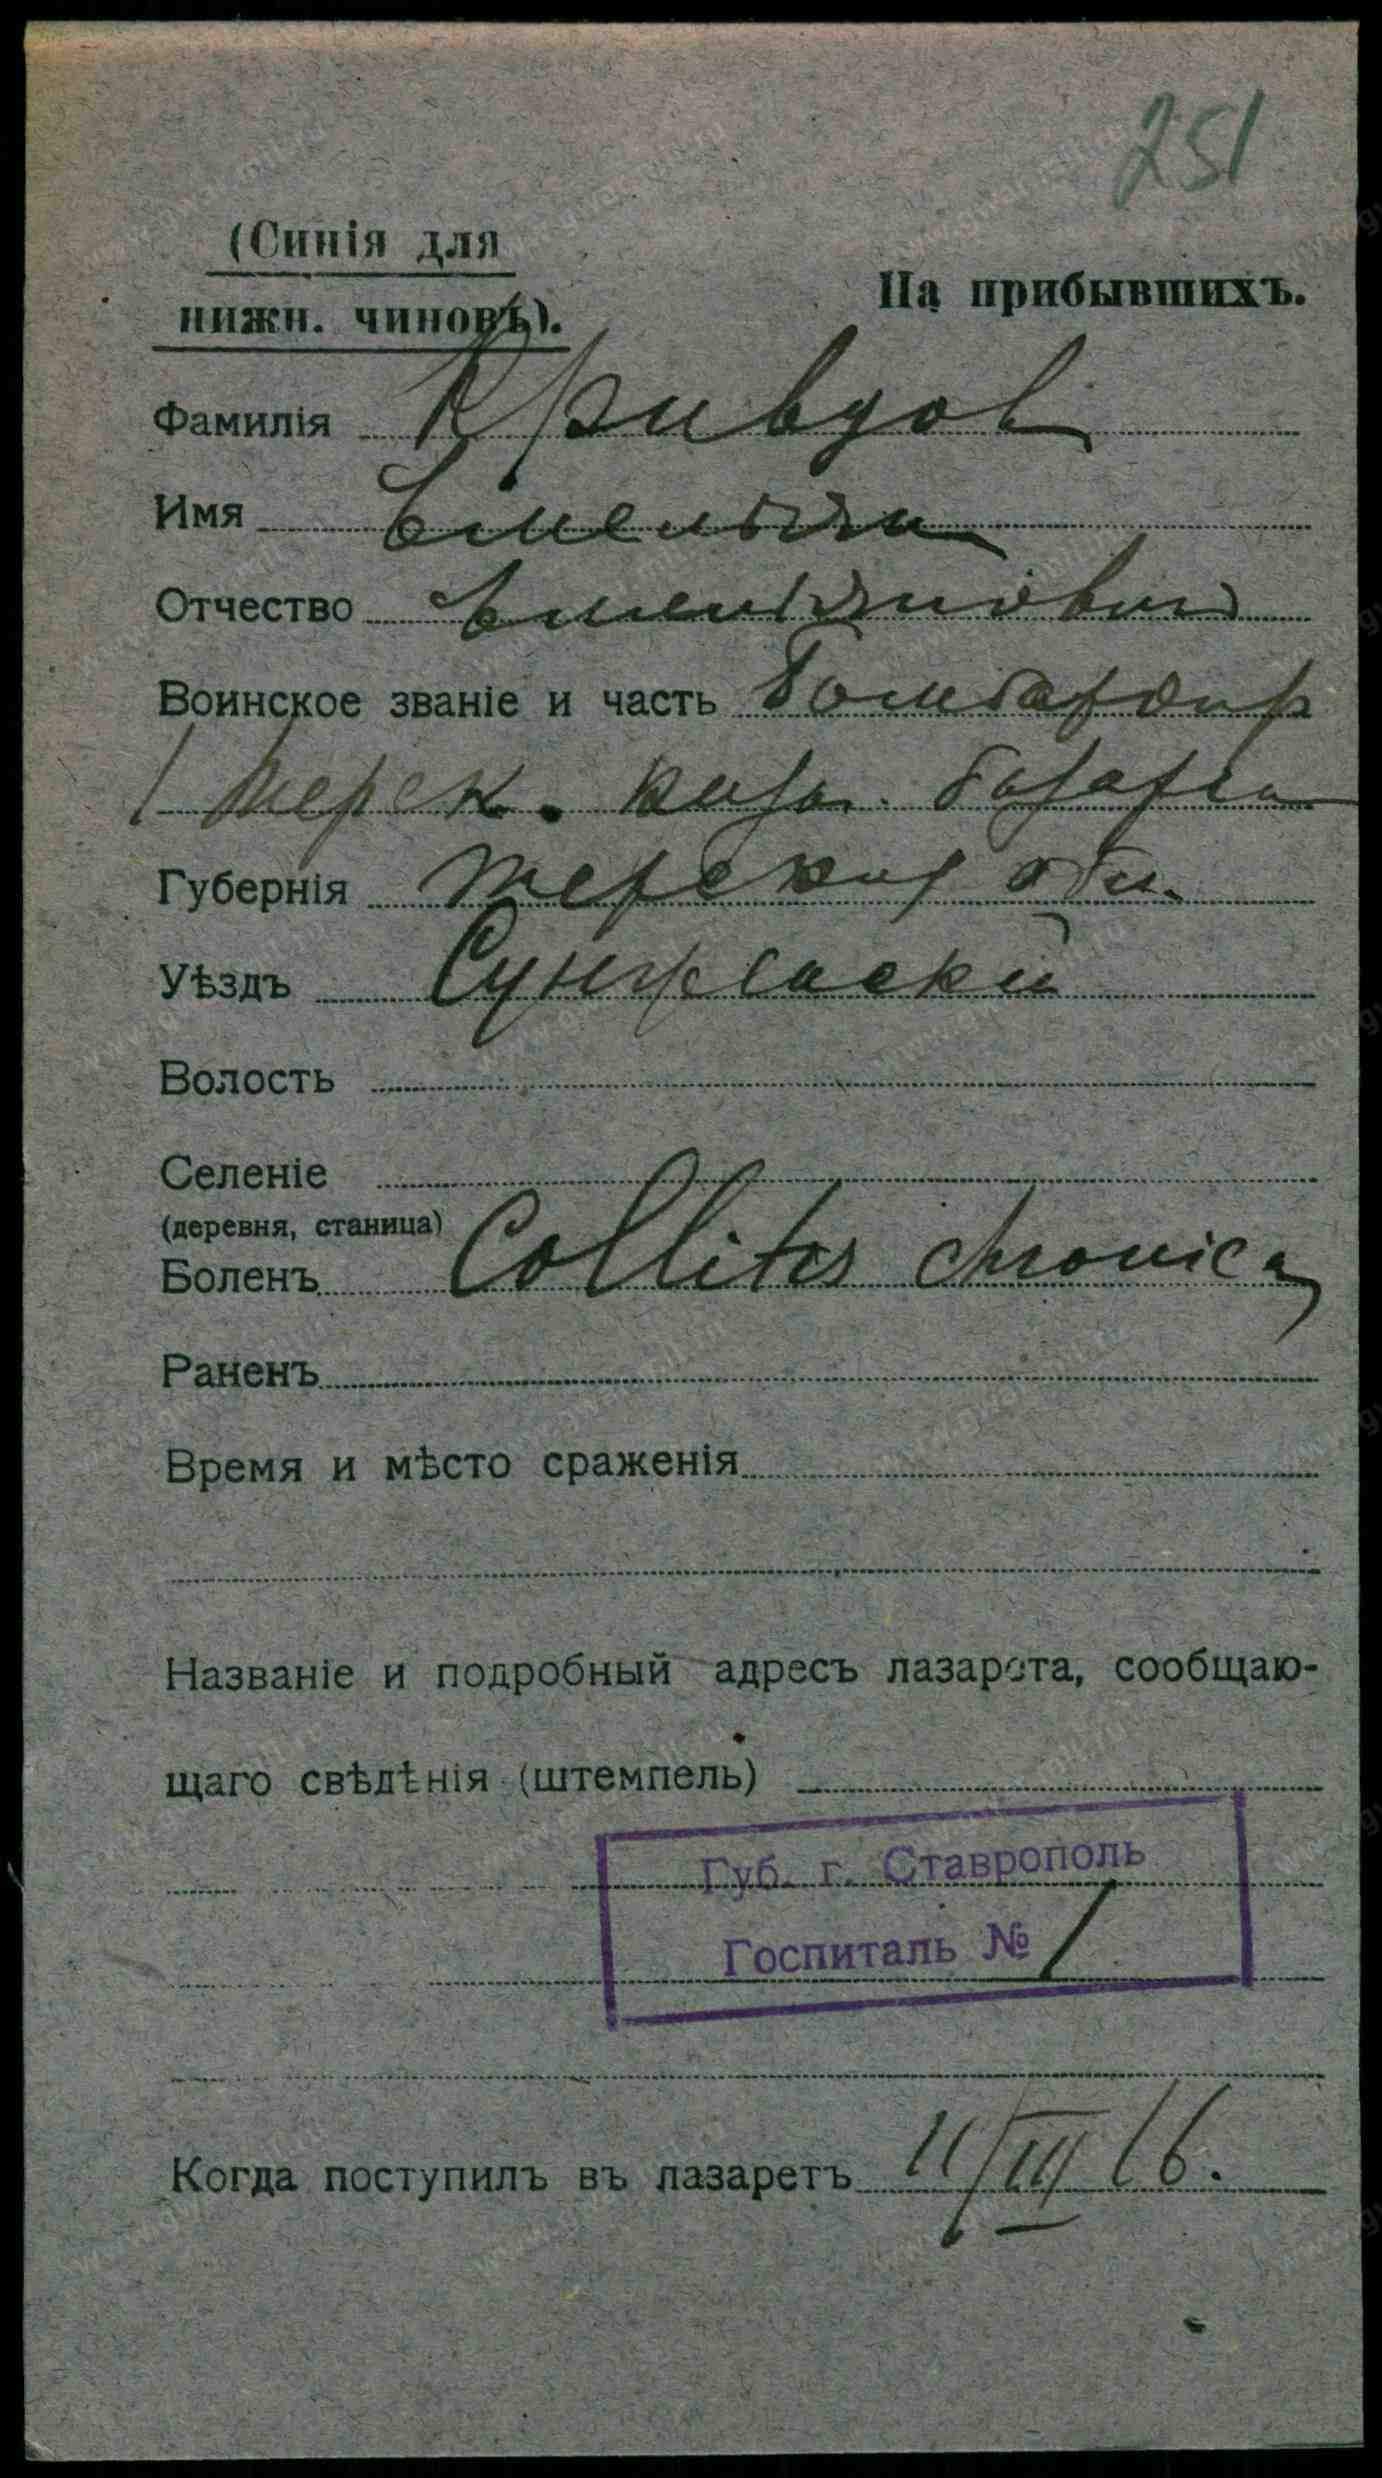 251
(Синія для
нижн. чиновъ).
На прибывшихъ.
Фамилія Кривцов
Имя Емельян
Отчество Емельянович
Воинское званіе и часть Бомбардир
1 терек. каз. батареи
Губернія Терская обл.
Уѣздъ Сунженский
Волость
Селеніе
(деревня, станица)
Боленъ Collitis chronica
Раненъ
Время и мѣсто сраженія
Названіе и подробный адресъ лазарета, сообщаю-
щаго свѣдѣнія (штемпель)
Губ. г. Ставрополь
Госпиталь № 1
Когда поступилъ въ лазаретъ 11/III 16.